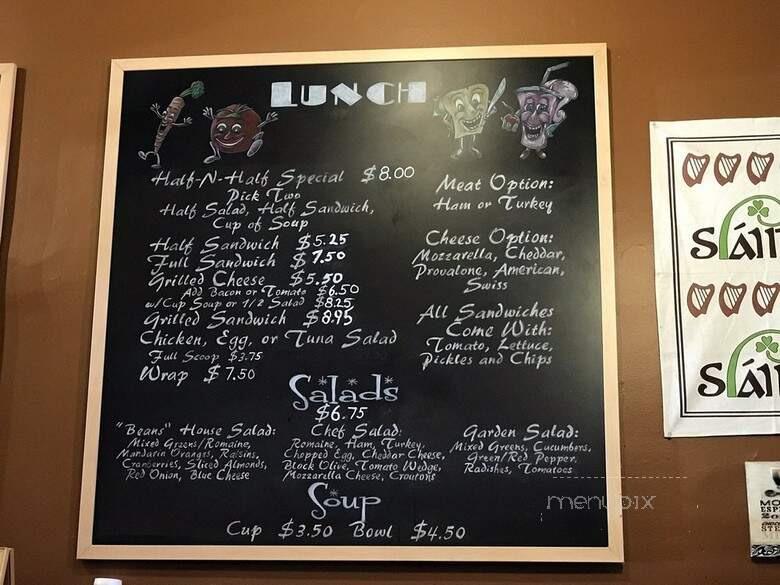 LUNCH
Half-N-Half Special $8.00
Pick Two
Half Salad, Half Sandwich,
Cup of Soup
Half Sandwich $5.25
Full Sandwich $7.50
Grilled Cheese $5.50
Add Bacon or Tomato $6.50
w/Cup Soup or 1/2 Salad $8.25
Grilled Sandwich $8.95
Chicken, Egg, or Tuna Salad
Full Scoop $3.75
Wrap $7.50
Meat Option:
Ham or Turkey
Cheese Option:
Mozzarella, Cheddar,
Provalone, American,
Swiss
All Sandwiches
Come With:
Tomato, Lettuce,
Pickles and Chips
Salads
$6.75
"Beans" House Salad:
Mixed Greens/Romaine,
Mandarin Oranges, Raisins,
Cranberries, Sliced Almonds,
Red Onion, Blue Cheese
Chef Salad:
Romaine, Ham, Turkey,
Chopped Egg, Cheddar Cheese,
Black Olive, Tomato Wedge,
Mozzarella Cheese, Croutons
Garden Salad:
Mixed Greens, Cucumbers,
Green/Red Pepper,
Radishes, Tomatoes
Soup
Cup $3.50 Bowl $4.50
menupix